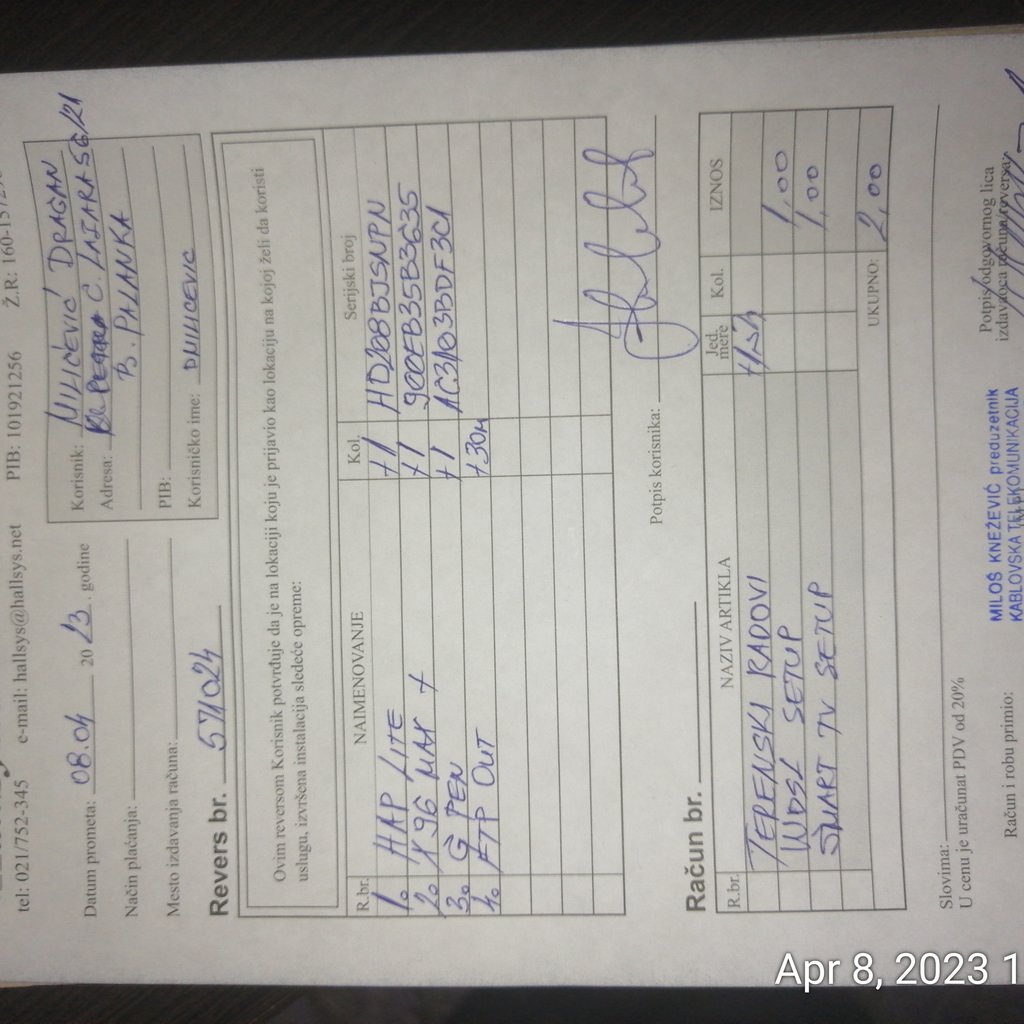 tel: 021/752-345 e-mail: hallsys@hallsys.net PIB: 101921256 Ž.R: 160-157
Datum prometa: 08.04 20 23. godine
Način plaćanja:
Mesto izdavanja računa:
Korisnik: MILIĆEVIĆ DRAGAN
Adresa: C. LAZARA 56/21
B. PALANKA
PIB:
Korisničko ime: DMILICEVIC
Revers br. 571024
Ovim reversom Korisnik potvrđuje da je na lokaciji koju je prijavio kao lokaciju na kojoj želi da koristi
uslugu, izvršena instalacija sledeće opreme:
R.br. NAIMENOVANJE Kol. Serijski broj
1. HAP LITE +1 HD208BJSNPN
2. X96 MAX + +1 90DEB35B3635
3. G PEN +1 AC3103BDF3C1
4. FTP OUT +30M
Potpis korisnika:
Račun br.
R.br. NAZIV ARTIKLA Jed. mere Kol. IZNOS
TERENSKI RADOVI 1,00
WDSL SETUP 1,00
SMART TV SETUP
UKUPNO: 2,00
Slovima:
U cenu je uračunat PDV od 20%
Račun i robu primio:
MILOŠ KNEŽEVIĆ preduzetnik
KABLOVSKA TELEKOMUNIKACIJA
Potpis odgovornog lica
izdavaoca računa/reversa:
Apr 8, 2023 1